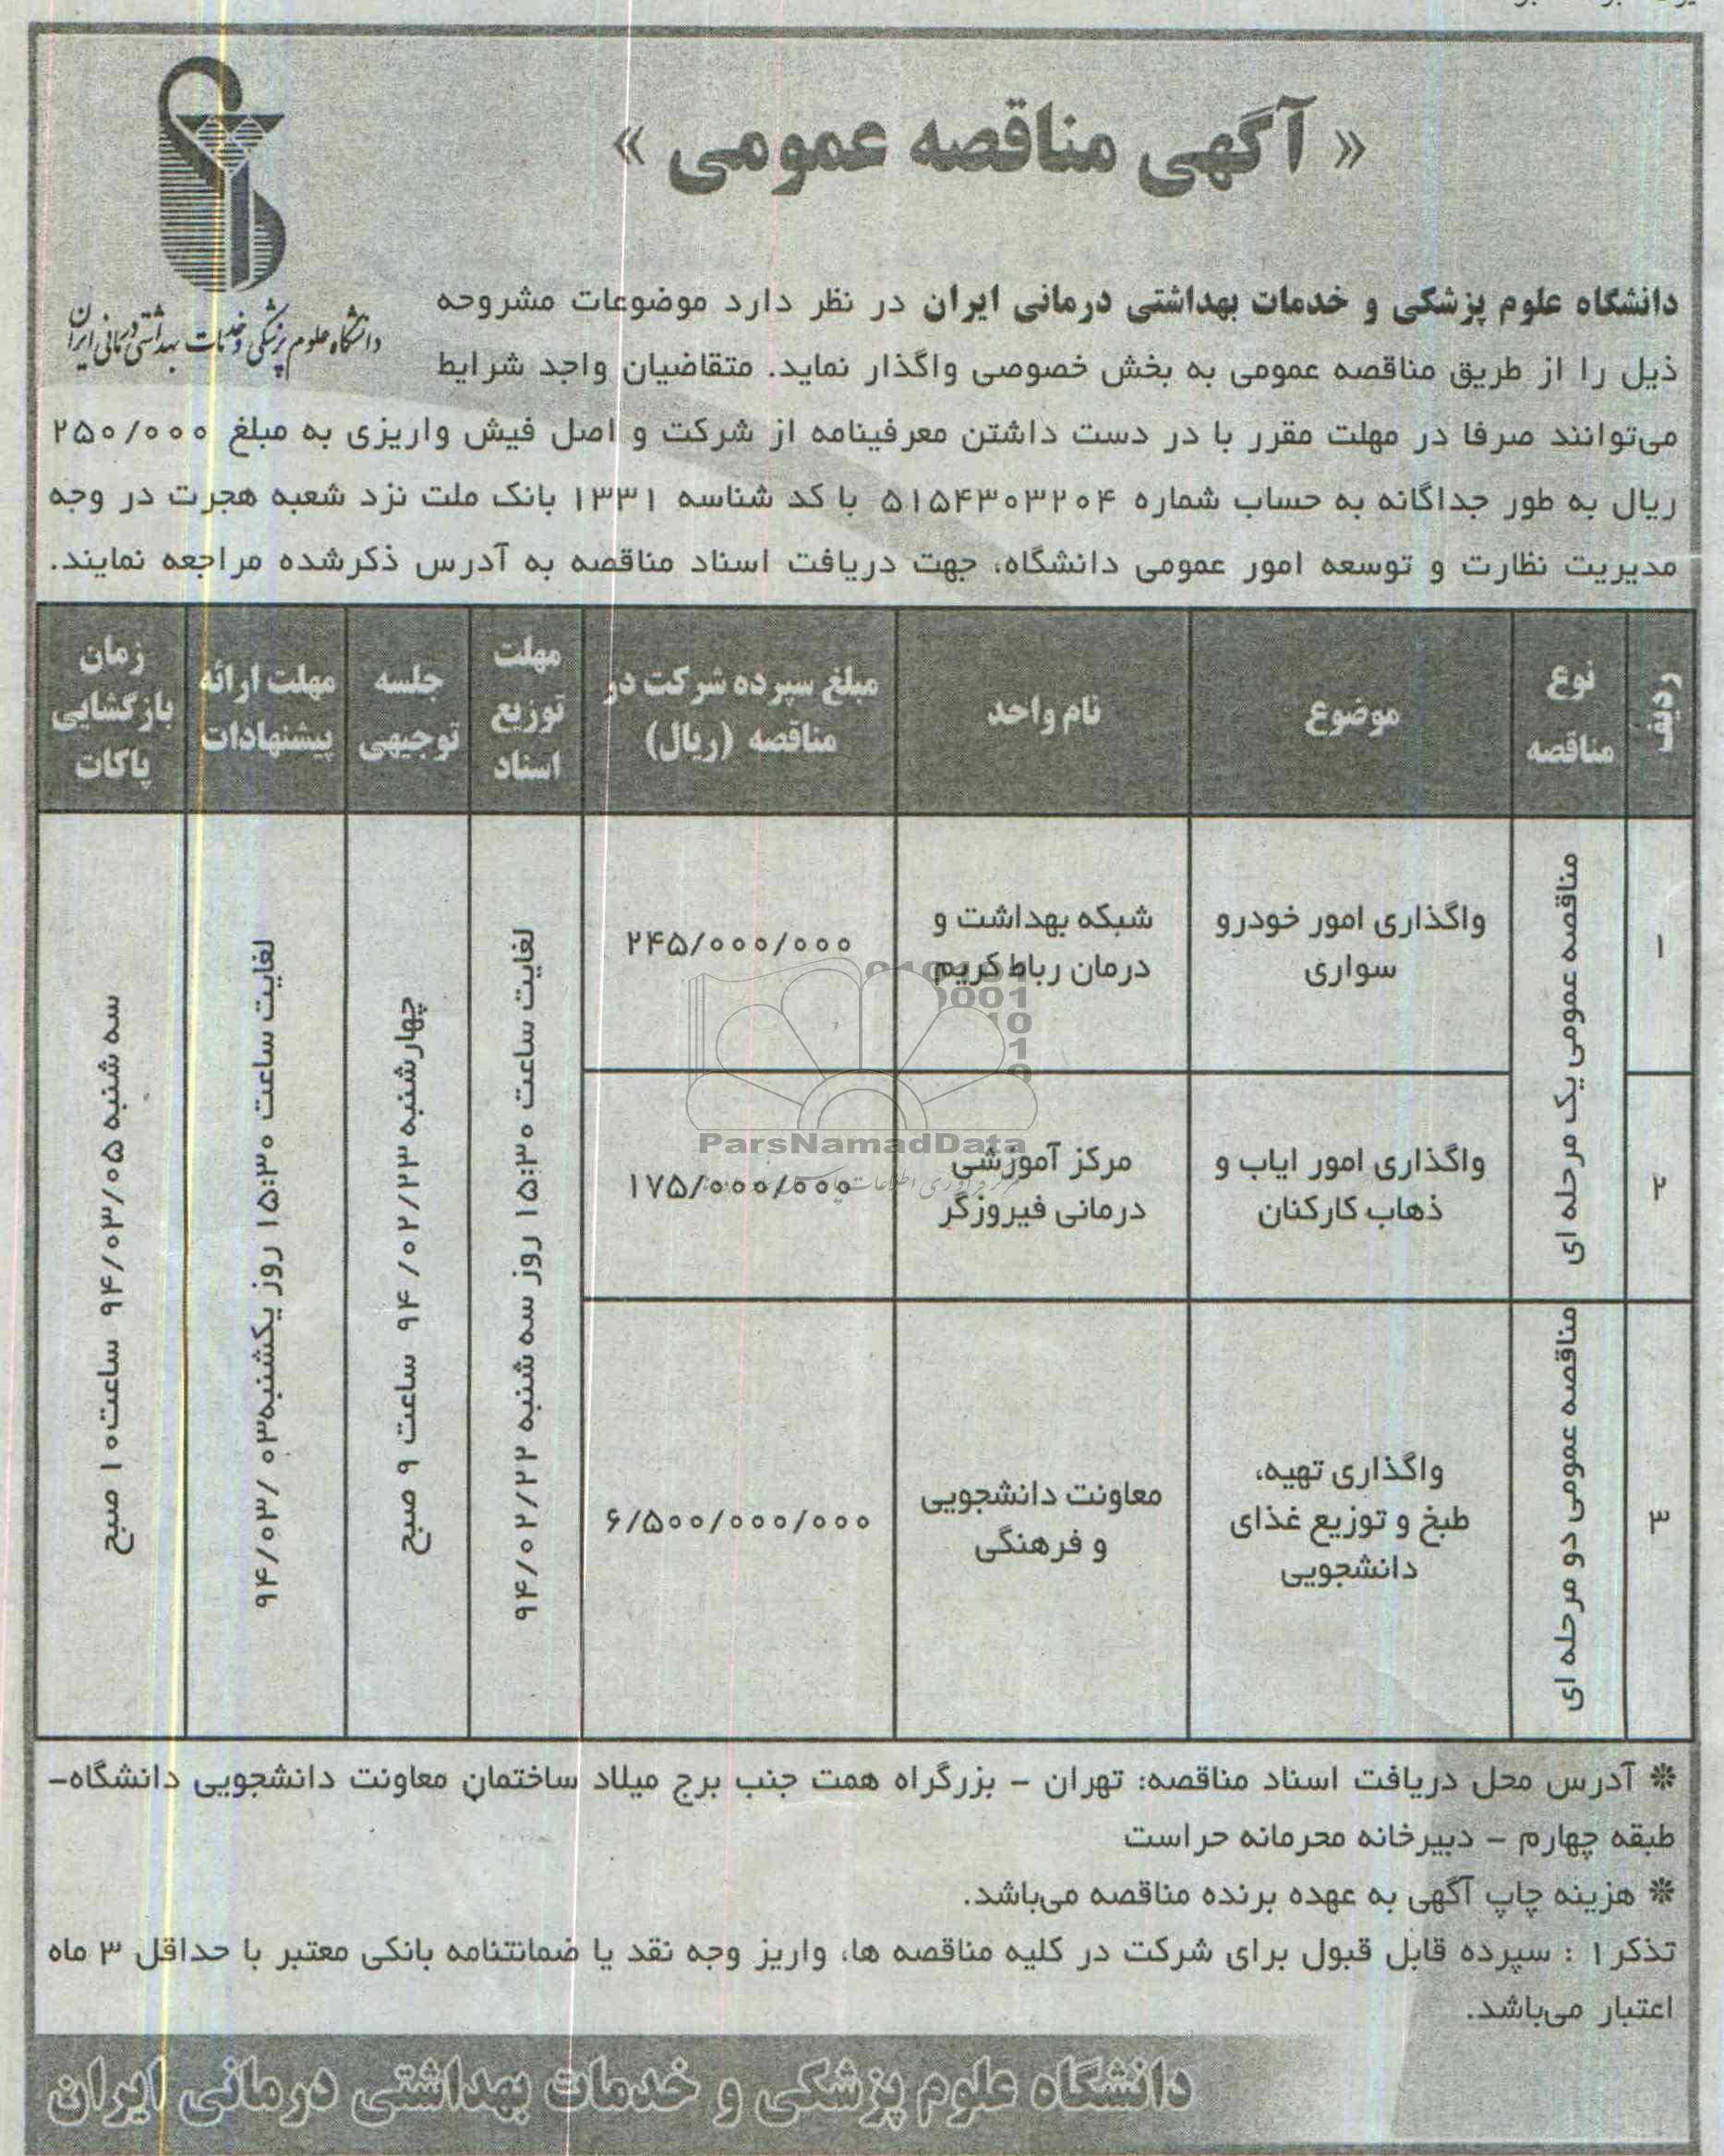 « آگهی مناقصه عمومی »
دانشگاه علوم پزشکی و خدمات بهداشتی درمانی ایران
دانشگاه علوم پزشکی و خدمات بهداشتی درمانی ایران در نظر دارد موضوعات مشروحه
ذیل را از طریق مناقصه عمومی به بخش خصوصی واگذار نماید. متقاضیان واجد شرایط
می‌توانند صرفا در مهلت مقرر با در دست داشتن معرفینامه از شرکت و اصل فیش واریزی به مبلغ ۲۵۰/۰۰۰
ریال به طور جداگانه به حساب شماره ۵۱۵۴۳۰۳۲۰۴ با کد شناسه ۱۳۳۱ بانک ملت نزد شعبه هجرت در وجه
مدیریت نظارت و توسعه امور عمومی دانشگاه، جهت دریافت اسناد مناقصه به آدرس ذکرشده مراجعه نمایند.
ردیف
نوع
مناقصه
موضوع
نام واحد
مبلغ سپرده شرکت در
مناقصه (ریال)
مهلت
توزیع
اسناد
جلسه
توجیهی
مهلت ارائه
پیشنهادات
زمان
بازگشایی
پاکات
۱
مناقصه عمومی یک مرحله ای
واگذاری امور خودرو
سواری
شبکه بهداشت و
درمان رباط کریم
۲۴۵/۰۰۰/۰۰۰
لغایت ساعت ۱۵:۳۰ روز سه شنبه ۹۴/۰۲/۲۲
چهارشنبه ۹۴/۰۲/۲۳ ساعت ۹ صبح
لغایت ساعت ۱۵:۳۰ روز یکشنبه ۹۴/۰۳/۰۳
سه شنبه ۹۴/۰۳/۰۵ ساعت ۱۰ صبح
۲
واگذاری امور ایاب و
ذهاب کارکنان
مرکز آموزشی
درمانی فیروزگر
۱۷۵/۰۰۰/۰۰۰
۳
مناقصه عمومی دو مرحله ای
واگذاری تهیه،
طبخ و توزیع غذای
دانشجویی
معاونت دانشجویی
و فرهنگی
۶/۵۰۰/۰۰۰/۰۰۰
ParsNamadData
❋ آدرس محل دریافت اسناد مناقصه: تهران – بزرگراه همت جنب برج میلاد ساختمان معاونت دانشجویی دانشگاه–
طبقه چهارم – دبیرخانه محرمانه حراست
❋ هزینه چاپ آگهی به عهده برنده مناقصه می‌باشد.
تذکر ۱ : سپرده قابل قبول برای شرکت در کلیه مناقصه ها، واریز وجه نقد یا ضمانتنامه بانکی معتبر با حداقل ۳ ماه
اعتبار می‌باشد.
دانشگاه علوم پزشکی و خدمات بهداشتی درمانی ایران